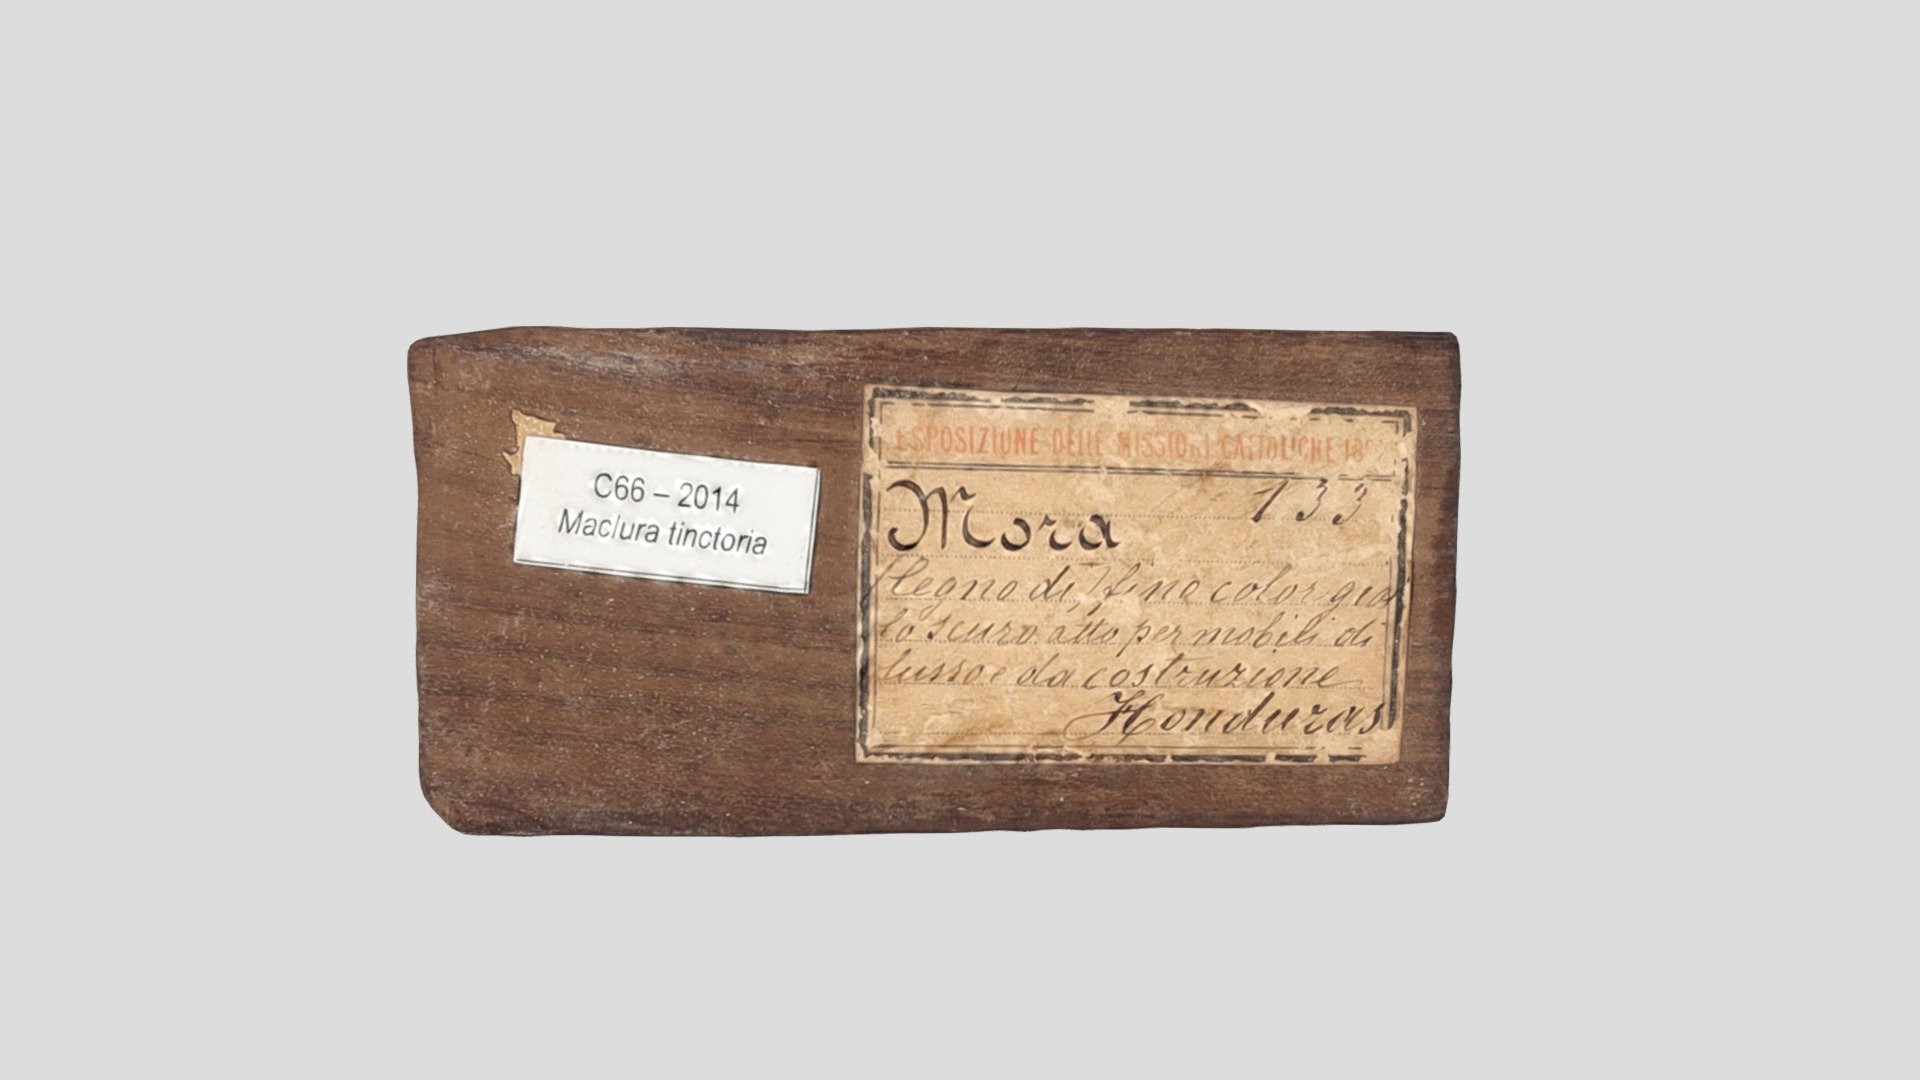 C66 – 2014
Maclura tinctoria
ESPOSIZIONE DELLE MISSIONI CATTOLICHE 18
Mora 133
legno di fino color gial
lo scuro atto per mobili di
lusso e da costruzione
Honduras